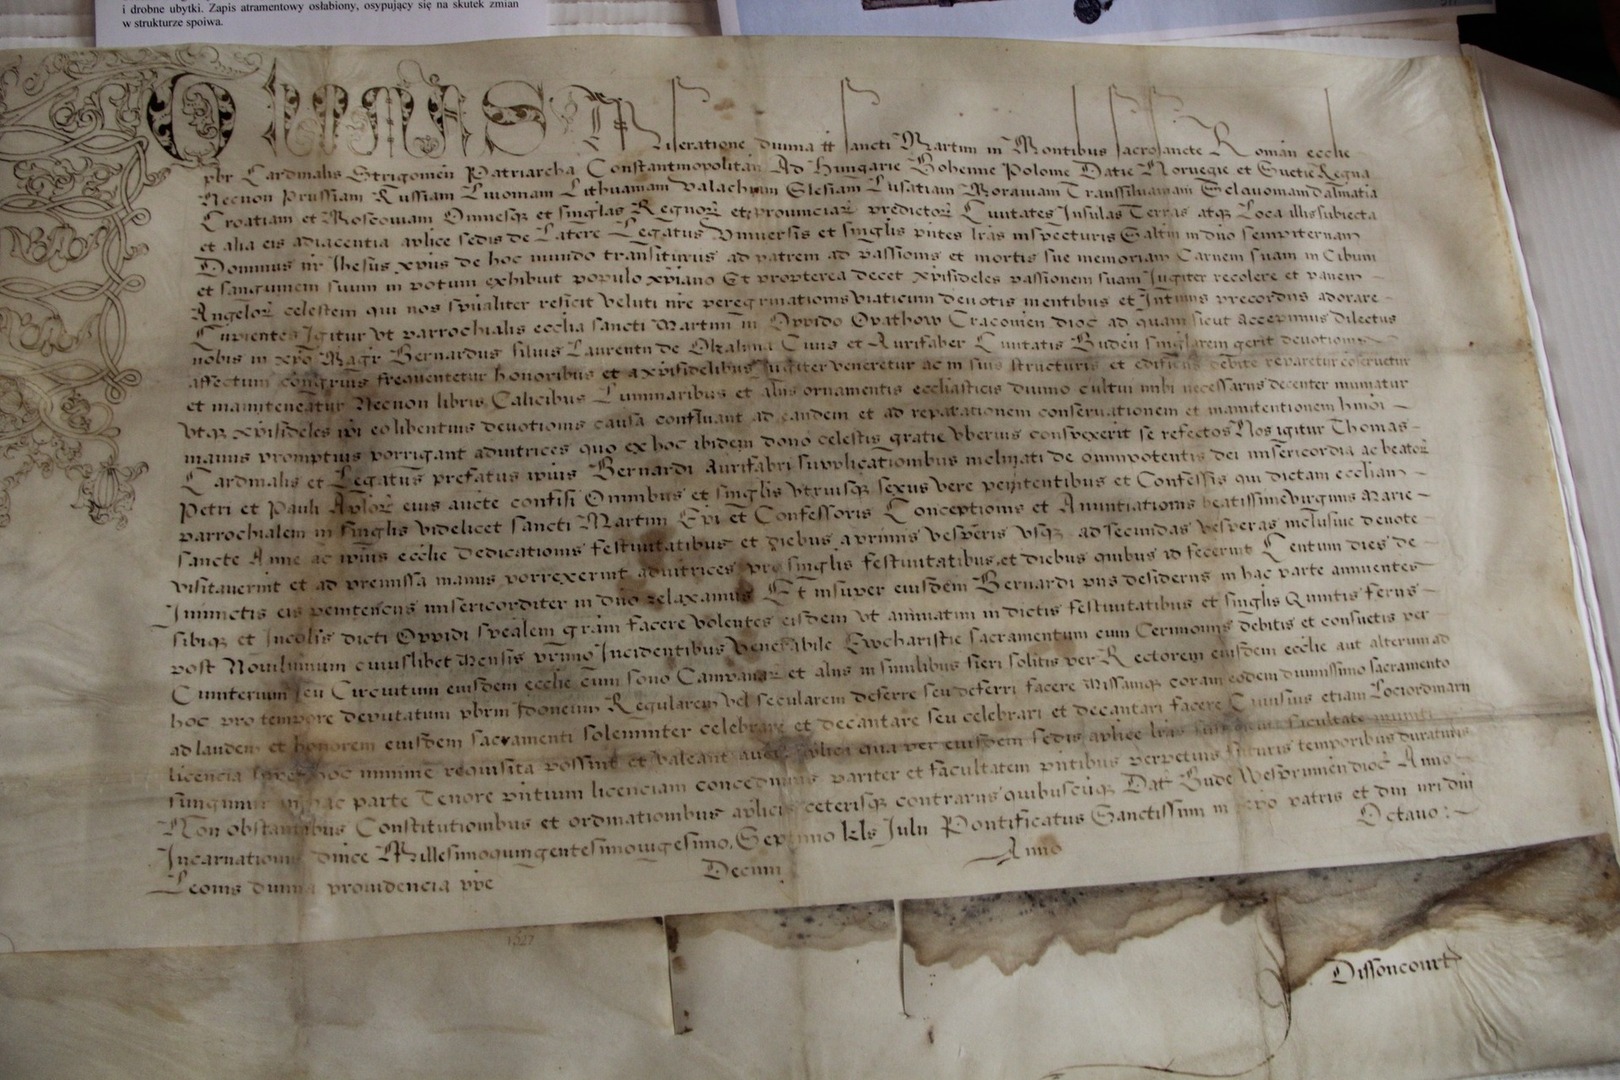 i drobne ubytki. Zapis atramentowy osłabiony, osypujący się na skutek zmian
w strukturze spoiwa.
THOMAS Miseratione diuina tt sancti Martini in Montibus sacrosancte Roman ecclie
pbr Cardinalis Strigonien Patriarcha Constantinopolitan Ad Hungarie Bohemie Polonie Datie Noruegie et Suetie Regna
Necnon Prussiam Russiam Liuoniam Lithuaniam Valachiam Slesiam Lusatiam Morauiam Transsiluaniam Sclauoniam Dalmatia
Croatiam et Moscouiam Omnesq et singlas Regnor et prouinciar predictor Ciuitates Insulas Terras atq Loca illis subiecta
et alia eis adiacentia aplice sedis de Latere Legatus Vniuersis et singlis pntes lras inspecturis Saltm in dno sempiternam
Dominus nr Ihesus xpus de hoc mundo transiturus ad patrem ad passionis et mortis sue memoriam Carnem suam in Cibum
et sanguinem suum in potum exhibuit populo xpiano Et propterea decet xpifideles passionem suam Jugiter recolere et panem
Angelor celestem qui nos spualiter reficit veluti nre peregrinationis viaticum deuotis mentibus et Intimis precordiis adorare
Cupientes Igitur vt parrochialis ecclia sancti Martini in Oppido Opathow Cracouien dioc ad quam sicut accepimus Dilectus
nobis in xpo Magr Bernardus filius Laurentii de Ciuis et Aurifaber Ciuitatis Buden singlarem gerit deuotionis
affectum congruis frequentetur honoribus et a xpifidelibus Jugiter veneretur ac in suis structuris et edificiis debite reparetur coseruetur
et manuteneatur Necnon libris Calicibus Luminaribus et aliis ornamentis ecclesiasticis diuino cultui inibi necessariis decenter muniatur
vtq xpifideles ipi eo libentius deuotionis causa confluant ad eandem et ad reparationem conseruationem et manutentionem hmoi
manus promptius porrigant adiutrices quo ex hoc ibidem dono celestis gratie vberius conspexerit se refectos Nos igitur Thomas
Cardinalis et Legatus prefatus ipius Bernardi Aurifabri supplicationibus inclinati de omnipotentis dei misericordia ac beator
Petri et Pauli Aplor eius aucte confisi Omnibus et singlis vtriusq sexus vere penitentibus et Confessis qui dictam eccliam
parrochialem in singlis videlicet sancti Martini Epi et Confessoris Conceptionis et Annuntiationis beatissime virginis Marie
sancte Anne ac ipius ecclie Dedicationis festiuitatibus et diebus a primis vesperis vsq ad secundas vesperas inclusiue deuote
visitauerint et ad premissa manus porrexerint adiutrices pro singlis festiuitatibus et diebus quibus id fecerint Centum dies de
Iniunctis eis penitenciis misericorditer in dno relaxamus Et insuper eiusdem Bernardi piis desideriis in hac parte annuentes
sibiq et Incolis dicti Oppidi spealem gram facere volentes eisdem vt annuatim in dictis festiuitatibus et singlis Quintis feriis
post Nouilunium cuiuslibet Mensis primo Incidentibus Venerabile Ewcharistie sacramentum cum Cerimoniis debitis et consuetis per
Cimiterium seu Circuitum eiusdem ecclie cum sono Campanar et aliis in similibus fieri solitis per Rectorem eiusdem ecclie aut alterum ad
hoc pro tempore deputatum pbrm Idoneum Regularem vel secularem deferre seu deferri facere Missamq coram eodem diuinissimo sacramento
ad laudem et honorem eiusdem sacramenti solemniter celebrare et decantare seu celebrari et decantari facere Cuiusuis etiam Lociordinarii
licencia super hoc minime requisita possint et valeant aucte aplica qua per eiusdem sedis aplice lras sufficienti facultate muniti
fungimur in hac parte Tenore pntium licenciam concedimus pariter et facultatem pntibus perpetuis futuris temporibus duraturis
Non obstantibus Constitutionibus et ordinationibus aplicis ceterisq contrariis quibuscuq Dat Bude Wesprimien dioc Anno
Incarnationis dnice Millesimoquingentesimouigesimo, Septimo kls Julii Pontificatus Sanctissimi in xpo patris et dni nri dni
Leonis diuina prouidencia ppe Decimi Anno Octauo :
1527
Dissoncourt